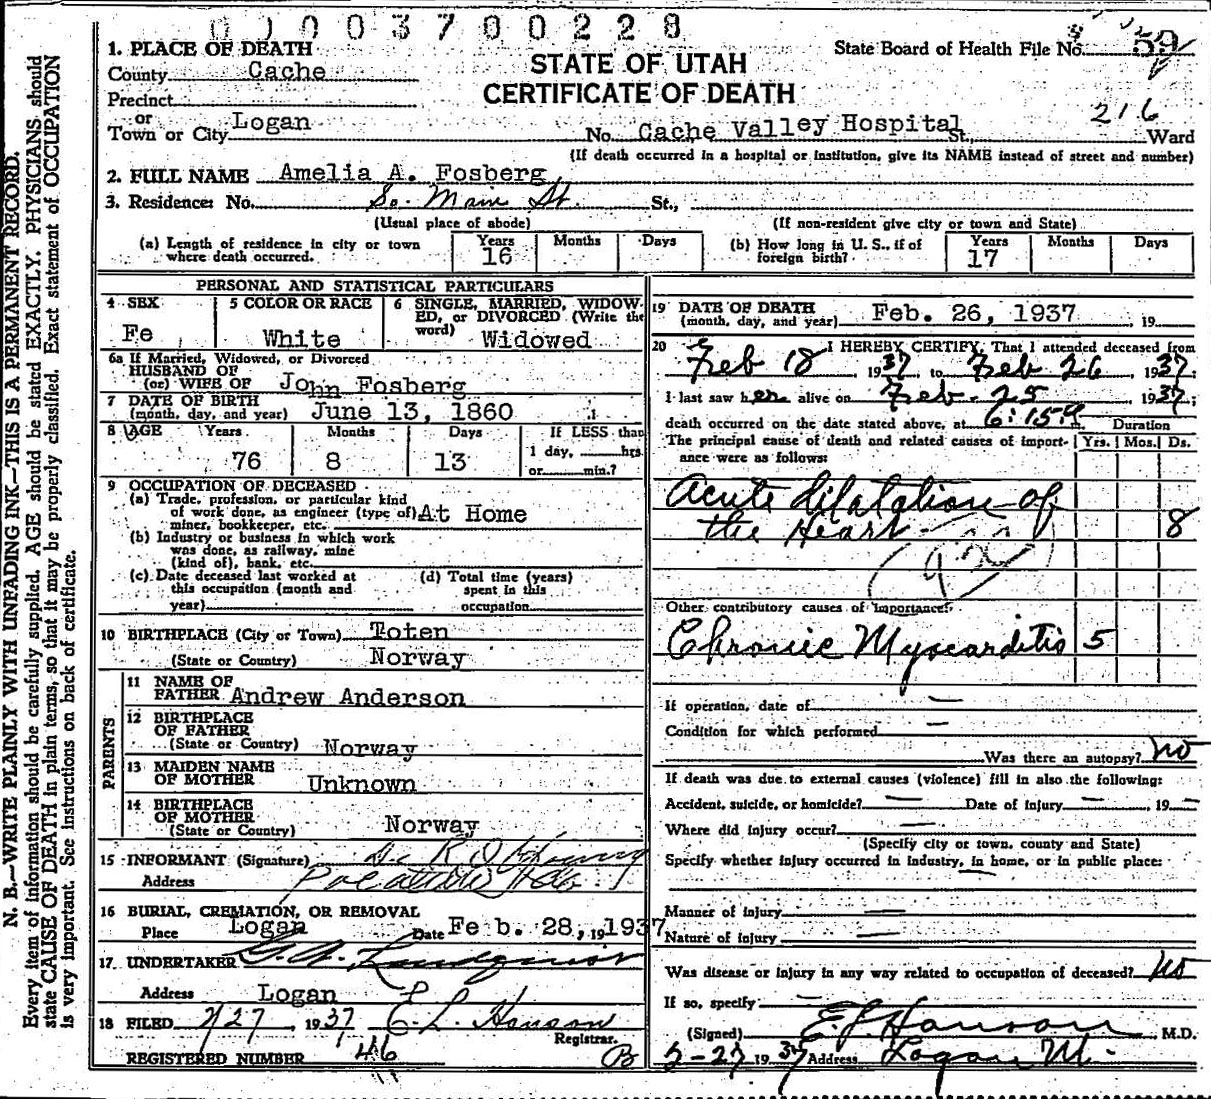 0003700228
1. PLACE OF DEATH
State Board of Health File No. 59
County Cache
STATE OF UTAH
CERTIFICATE OF DEATH
Precinct
or
Town or City Logan No. Cache Valley Hospital St., Ward
216
(If death occurred in a hospital or institution, give its NAME instead of street and number)
2. FULL NAME Amelia A. Fosberg
3. Residence: No. So. Main St. St.,
(Usual place of abode) (If non-resident give city or town and State)
(a) Length of residence in city or town where death occurred. Years 16 Months Days
(b) How long in U. S., if of foreign birth? Years 17 Months Days
PERSONAL AND STATISTICAL PARTICULARS
4 SEX Fe
5 COLOR OR RACE White
6 SINGLE, MARRIED, WIDOWED, or DIVORCED (Write the word) Widowed
6a If Married, Widowed, or Divorced
HUSBAND OF
(or) WIFE OF John Fosberg
7 DATE OF BIRTH
(month, day, and year) June 13, 1860
8 AGE Years Months Days If LESS than
76 8 13 1 day, hrs
or min.?
9 OCCUPATION OF DECEASED
(a) Trade, profession, or particular kind
of work done, as engineer (type of) At Home
miner, bookkeeper, etc.
(b) Industry or business in which work
was done, as railway, mine
(kind of), bank, etc.
(c) Date deceased last worked at
this occupation (month and
year)
(d) Total time (years)
spent in this
occupation
10 BIRTHPLACE (City or Town) Toten
(State or Country) Norway
PARENTS
11 NAME OF
FATHER Andrew Anderson
12 BIRTHPLACE
OF FATHER
(State or Country) Norway
13 MAIDEN NAME
OF MOTHER Unknown
14 BIRTHPLACE
OF MOTHER
(State or Country) Norway
15 INFORMANT (Signature)
Address
16 BURIAL, CREMATION, OR REMOVAL
Place Logan Date Feb. 28, 1937
17 UNDERTAKER
Address Logan
18 FILED 2/27, 1937 E. L. Hanson
Registrar.
REGISTERED NUMBER 46 B
19 DATE OF DEATH
(month, day, and year) Feb. 26, 1937, 19
20 I HEREBY CERTIFY, That I attended deceased from
Feb 18 1937 to Feb 26, 1937;
I last saw her alive on Feb. 25 1937;
death occurred on the date stated above, at 6:15 Duration
The principal cause of death and related causes of importance were as follows: Yrs. Mos. Ds.
Acute dilatation of
the Heart 8
Other contributory causes of importance:
Chronic Myocarditis 5
If operation, date of —
Condition for which performed —
Was there an autopsy? no
If death was due to external causes (violence) fill in also the following:
Accident, suicide, or homicide? — Date of injury — 19 —
Where did injury occur? —
(Specify city or town, county and State)
Specify whether injury occurred in industry, in home, or in public place: —
Manner of injury —
Nature of injury —
Was disease or injury in any way related to occupation of deceased? no
If so, specify —
(Signed) E. L. Hanson M.D.
2-27 1937 Address Logan
N. B.—WRITE PLAINLY WITH UNFADING INK—THIS IS A PERMANENT RECORD.
Every item of information should be carefully supplied. AGE should be stated EXACTLY. PHYSICIANS should
state CAUSE OF DEATH in plain terms, so that it may be properly classified. Exact statement of OCCUPATION
is very important. See instructions on back of certificate.